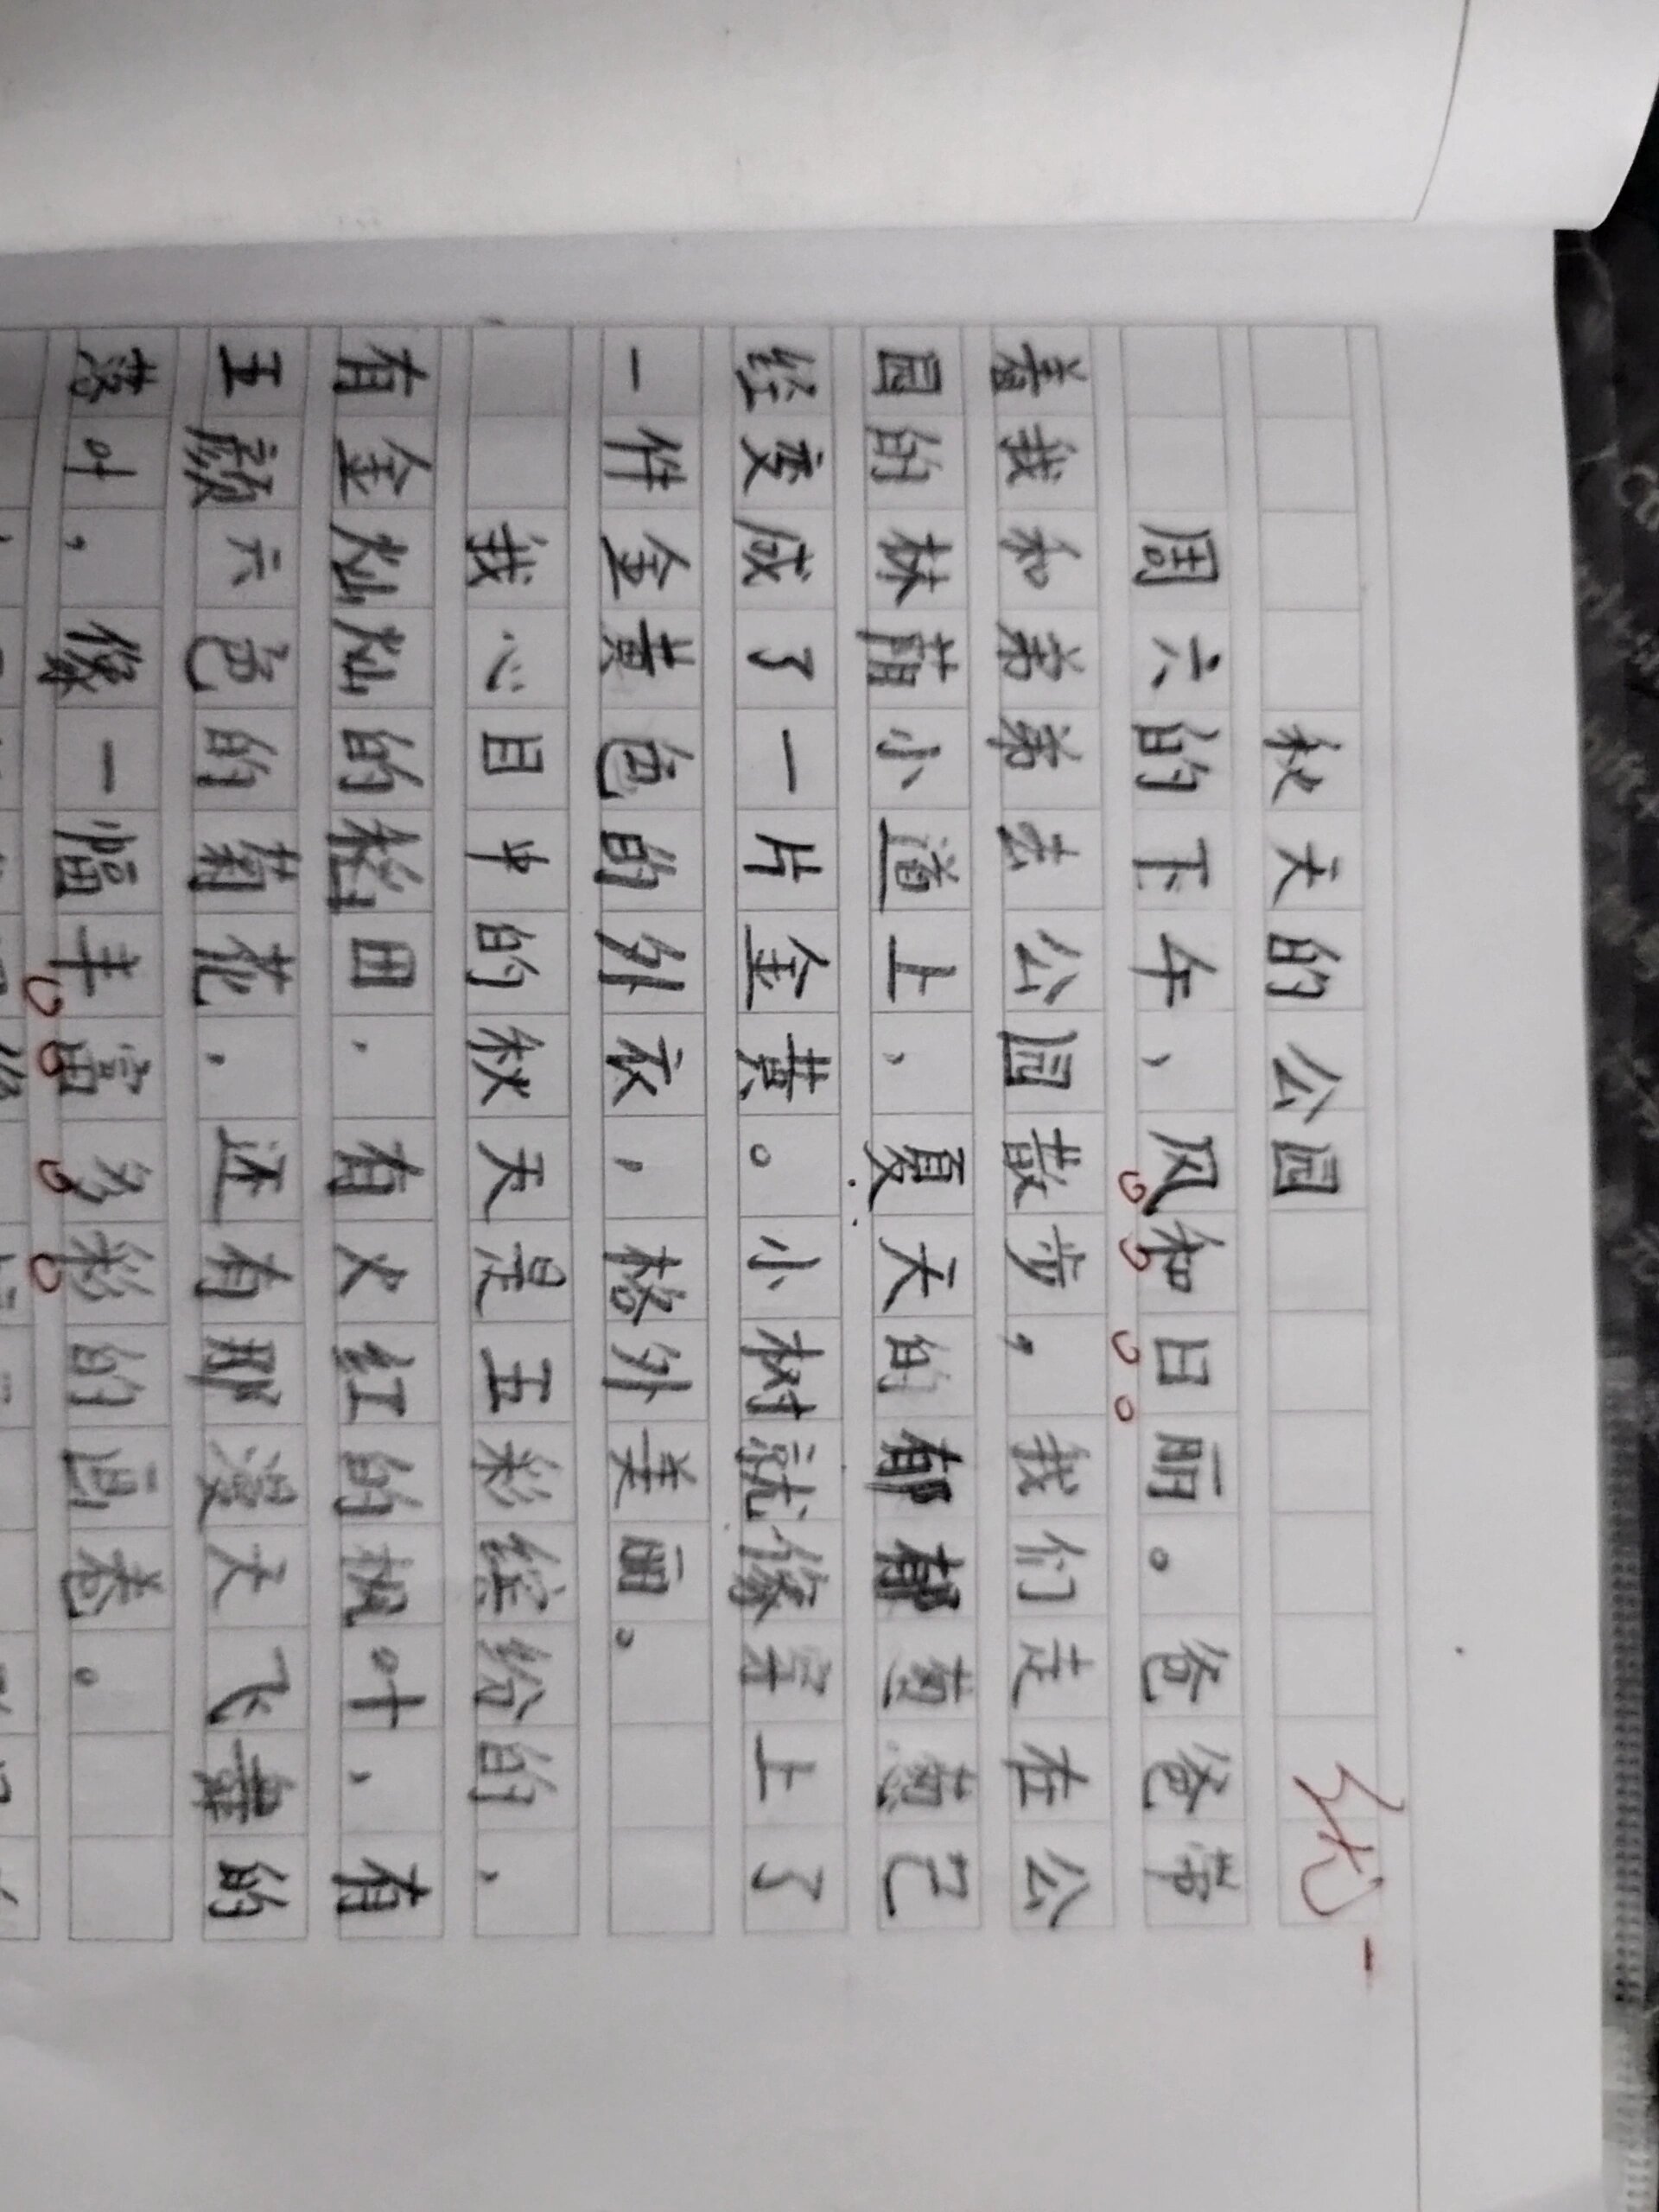 秋天的公园
优-
周六的下午，风和日丽。爸爸带
着我和弟弟去公园散步，我们走在公
园的林荫小道上，夏天的郁郁葱葱已
经变成了一片金黄。小树就像穿上了
一件金黄色的外衣，格外美丽。
我心目中的秋天是五彩缤纷的，
有金灿灿的稻田，有火红的枫叶，有
五颜六色的菊花，还有那漫天飞舞的
落叶，像一幅丰富多彩的画卷。